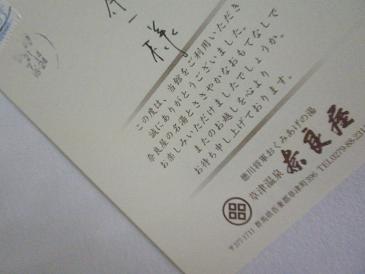 様
この度は、当館をご利用いただき
誠にありがとうございました。
奈良屋の名湯とささやかなおもてなしで
お楽しみいただけましたでしょうか。
またのお越しを心より
お待ち申し上げております。
徳川将軍おくみあげの湯
草津温泉 奈良屋
〒377-1711 群馬県吾妻郡草津町396 TEL0279-88-231